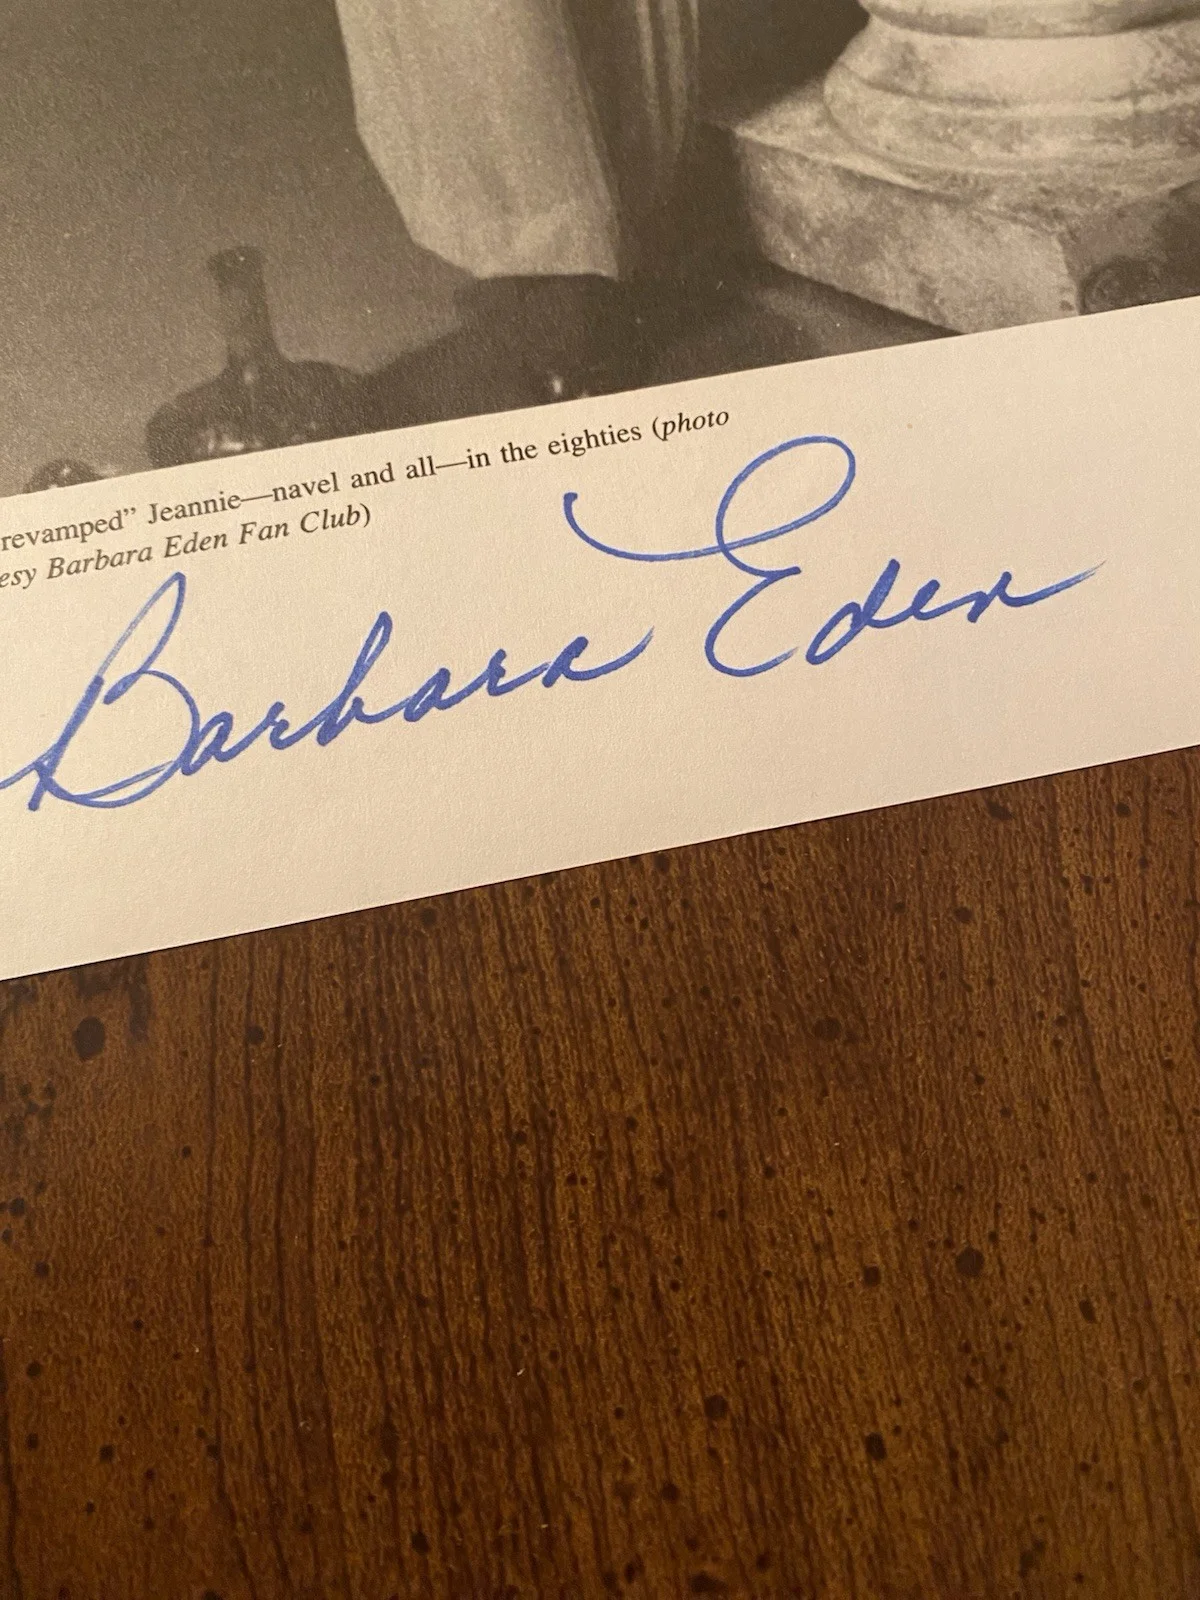 revamped” Jeannie—navel and all—in the eighties (photo
esy Barbara Eden Fan Club)
Barbara Eden